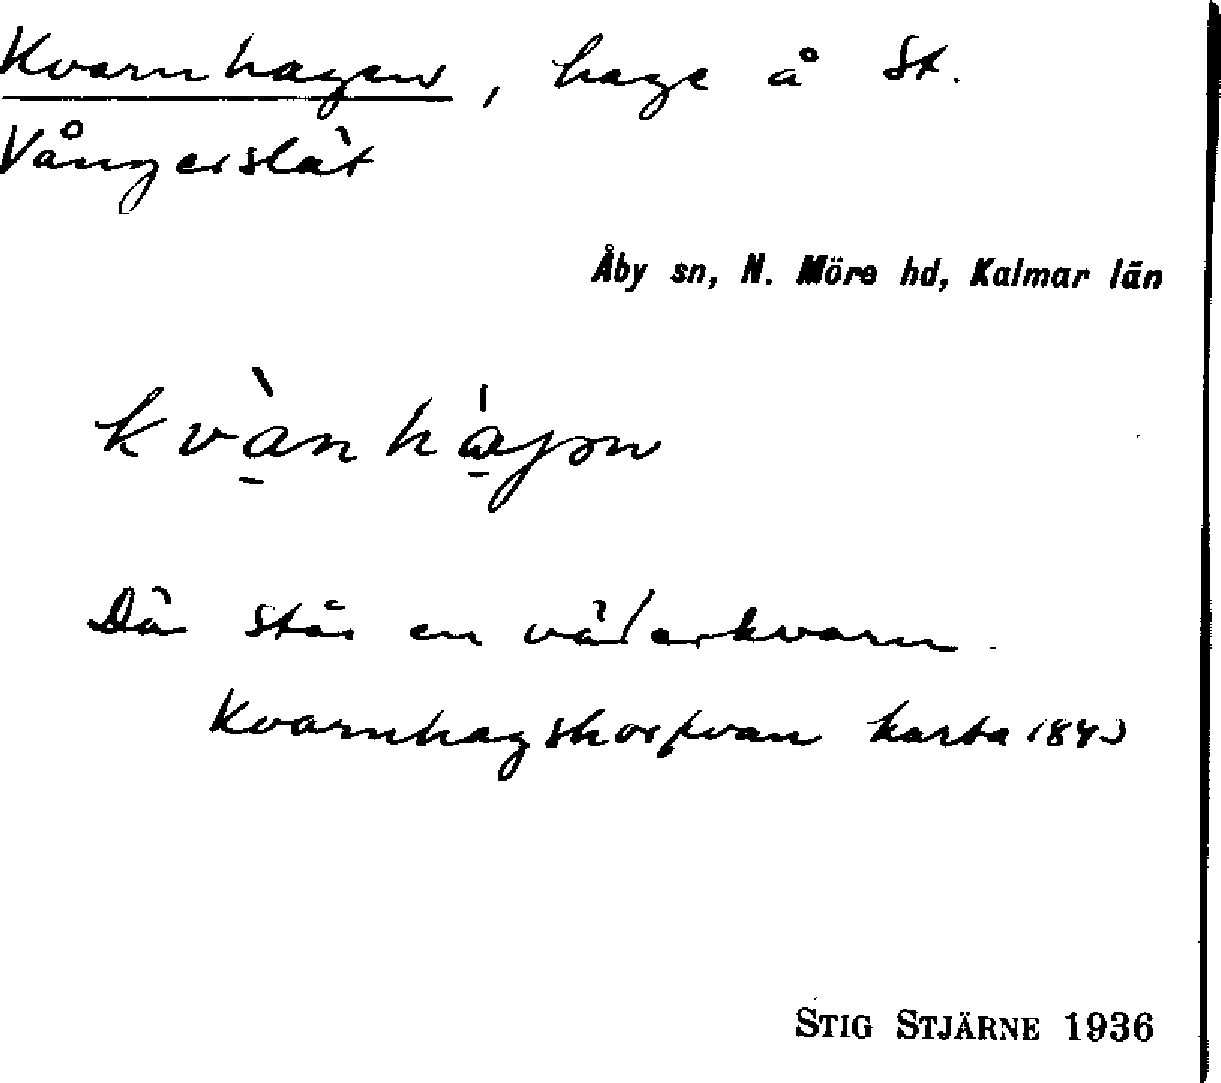 Kvarnhagen, hage å St.
Vångerslät
Åby sn, N. Möre hd, Kalmar län
kvànhàgən
Där står en väderkvarn.
Kvarnhagshorfvan karta 1843
STIG STJÄRNE 1936